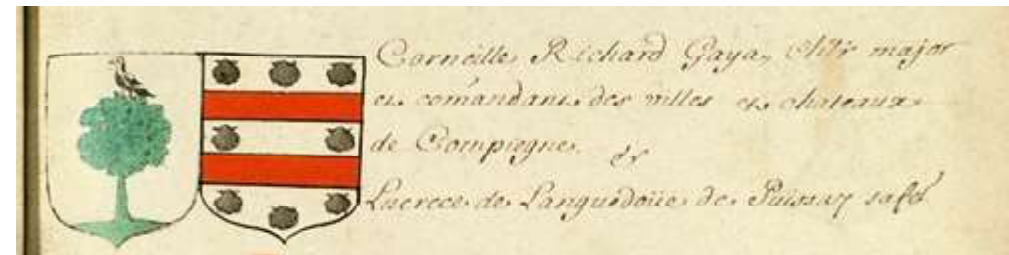 Corneille Richard Gaya, Chlr major
et comãndant des villes et chateaux
de Compiegne. et
Lucrece de Languedoüe de Puissay safẽ